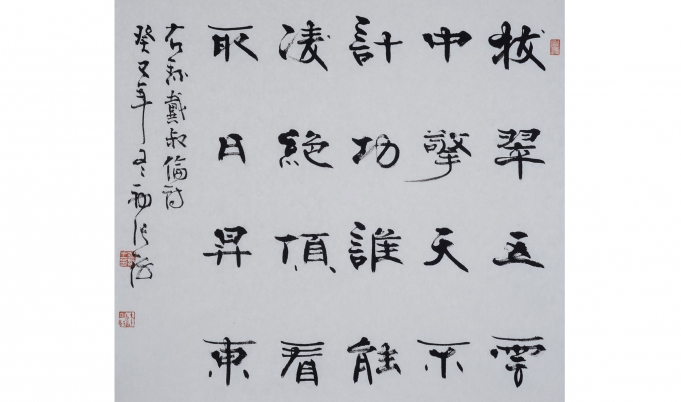 拔翠五雲
中擎天不
計功誰能
凌絕頂看
取日昇東
右録戴叔倫詩
癸巳年冬初張